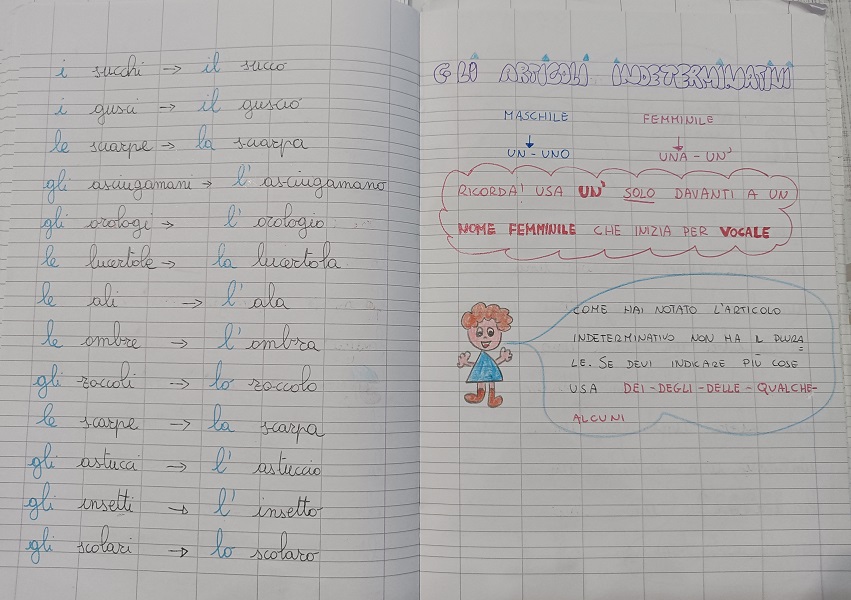 i succhi → il succo
i gusci → il guscio
le sciarpe → la sciarpa
gli asciugamani → l'asciugamano
gli orologi → l'orologio
le lucertole → la lucertola
le ali → l'ala
le ombre → l'ombra
gli zoccoli → lo zoccolo
le scarpe → la scarpa
gli astucci → l'astuccio
gli insetti → l'insetto
gli scolari → lo scolaro
GLI ARTICOLI INDETERMINATIVI
MASCHILE FEMMINILE
UN - UNO UNA - UN'
RICORDA! USA UN' SOLO DAVANTI A UN
NOME FEMMINILE CHE INIZIA PER VOCALE
COME HAI NOTATO L'ARTICOLO
INDETERMINATIVO NON HA IL PLURA
LE. SE DEVI INDICARE PIÙ COSE
USA DEI - DEGLI - DELLE - QUALCHE -
ALCUNI